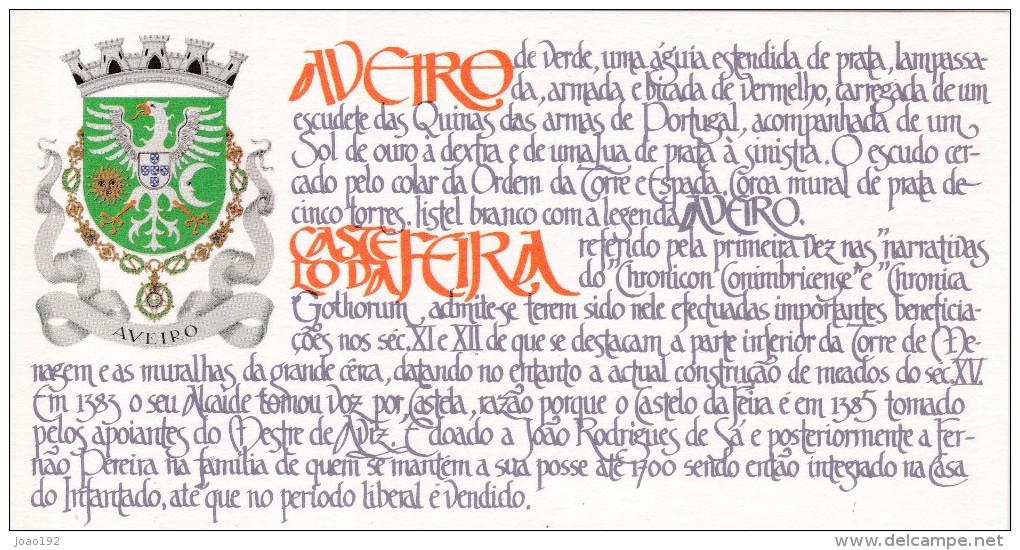 AVEIRO de verde, uma águia estendida de prata, lampassa-
da, armada e bicada de vermelho, carregada de um
escudete das Quinas das armas de Portugal, acompanhada de um
Sol de ouro à dextra e de uma lua de prata à sinistra. O escudo cer-
cado pelo colar da Ordem da Torre e Espada. Coroa mural de prata de
cinco torres. listel branco com a legenda AVEIRO.
CASTELO DA FEIRA referido pela primeira vez nas "narrativas
do "Chronicon Conimbricense" e "Chronica
Gothorum", admite-se terem sido nele efectuadas importantes beneficia-
ções nos séc. XI e XII de que se destacam a parte inferior da Torre de Me-
nagem e as muralhas da grande cêrca, datando no entanto a actual construção de meados do séc. XV.
Em 1383 o seu Alcaide tomou voz por Castela, razão porque o Castelo da Feira é em 1385 tomado
pelos apoiantes do Mestre de Aviz. É doado a João Rodrigues de Sá e posteriormente a Fer-
não Pereira na família de quem se mantém a sua posse até 1700 sendo então integrado na Casa
do Infantado, até que no período liberal é vendido.
AVEIRO
joao192
www.delcampe.net